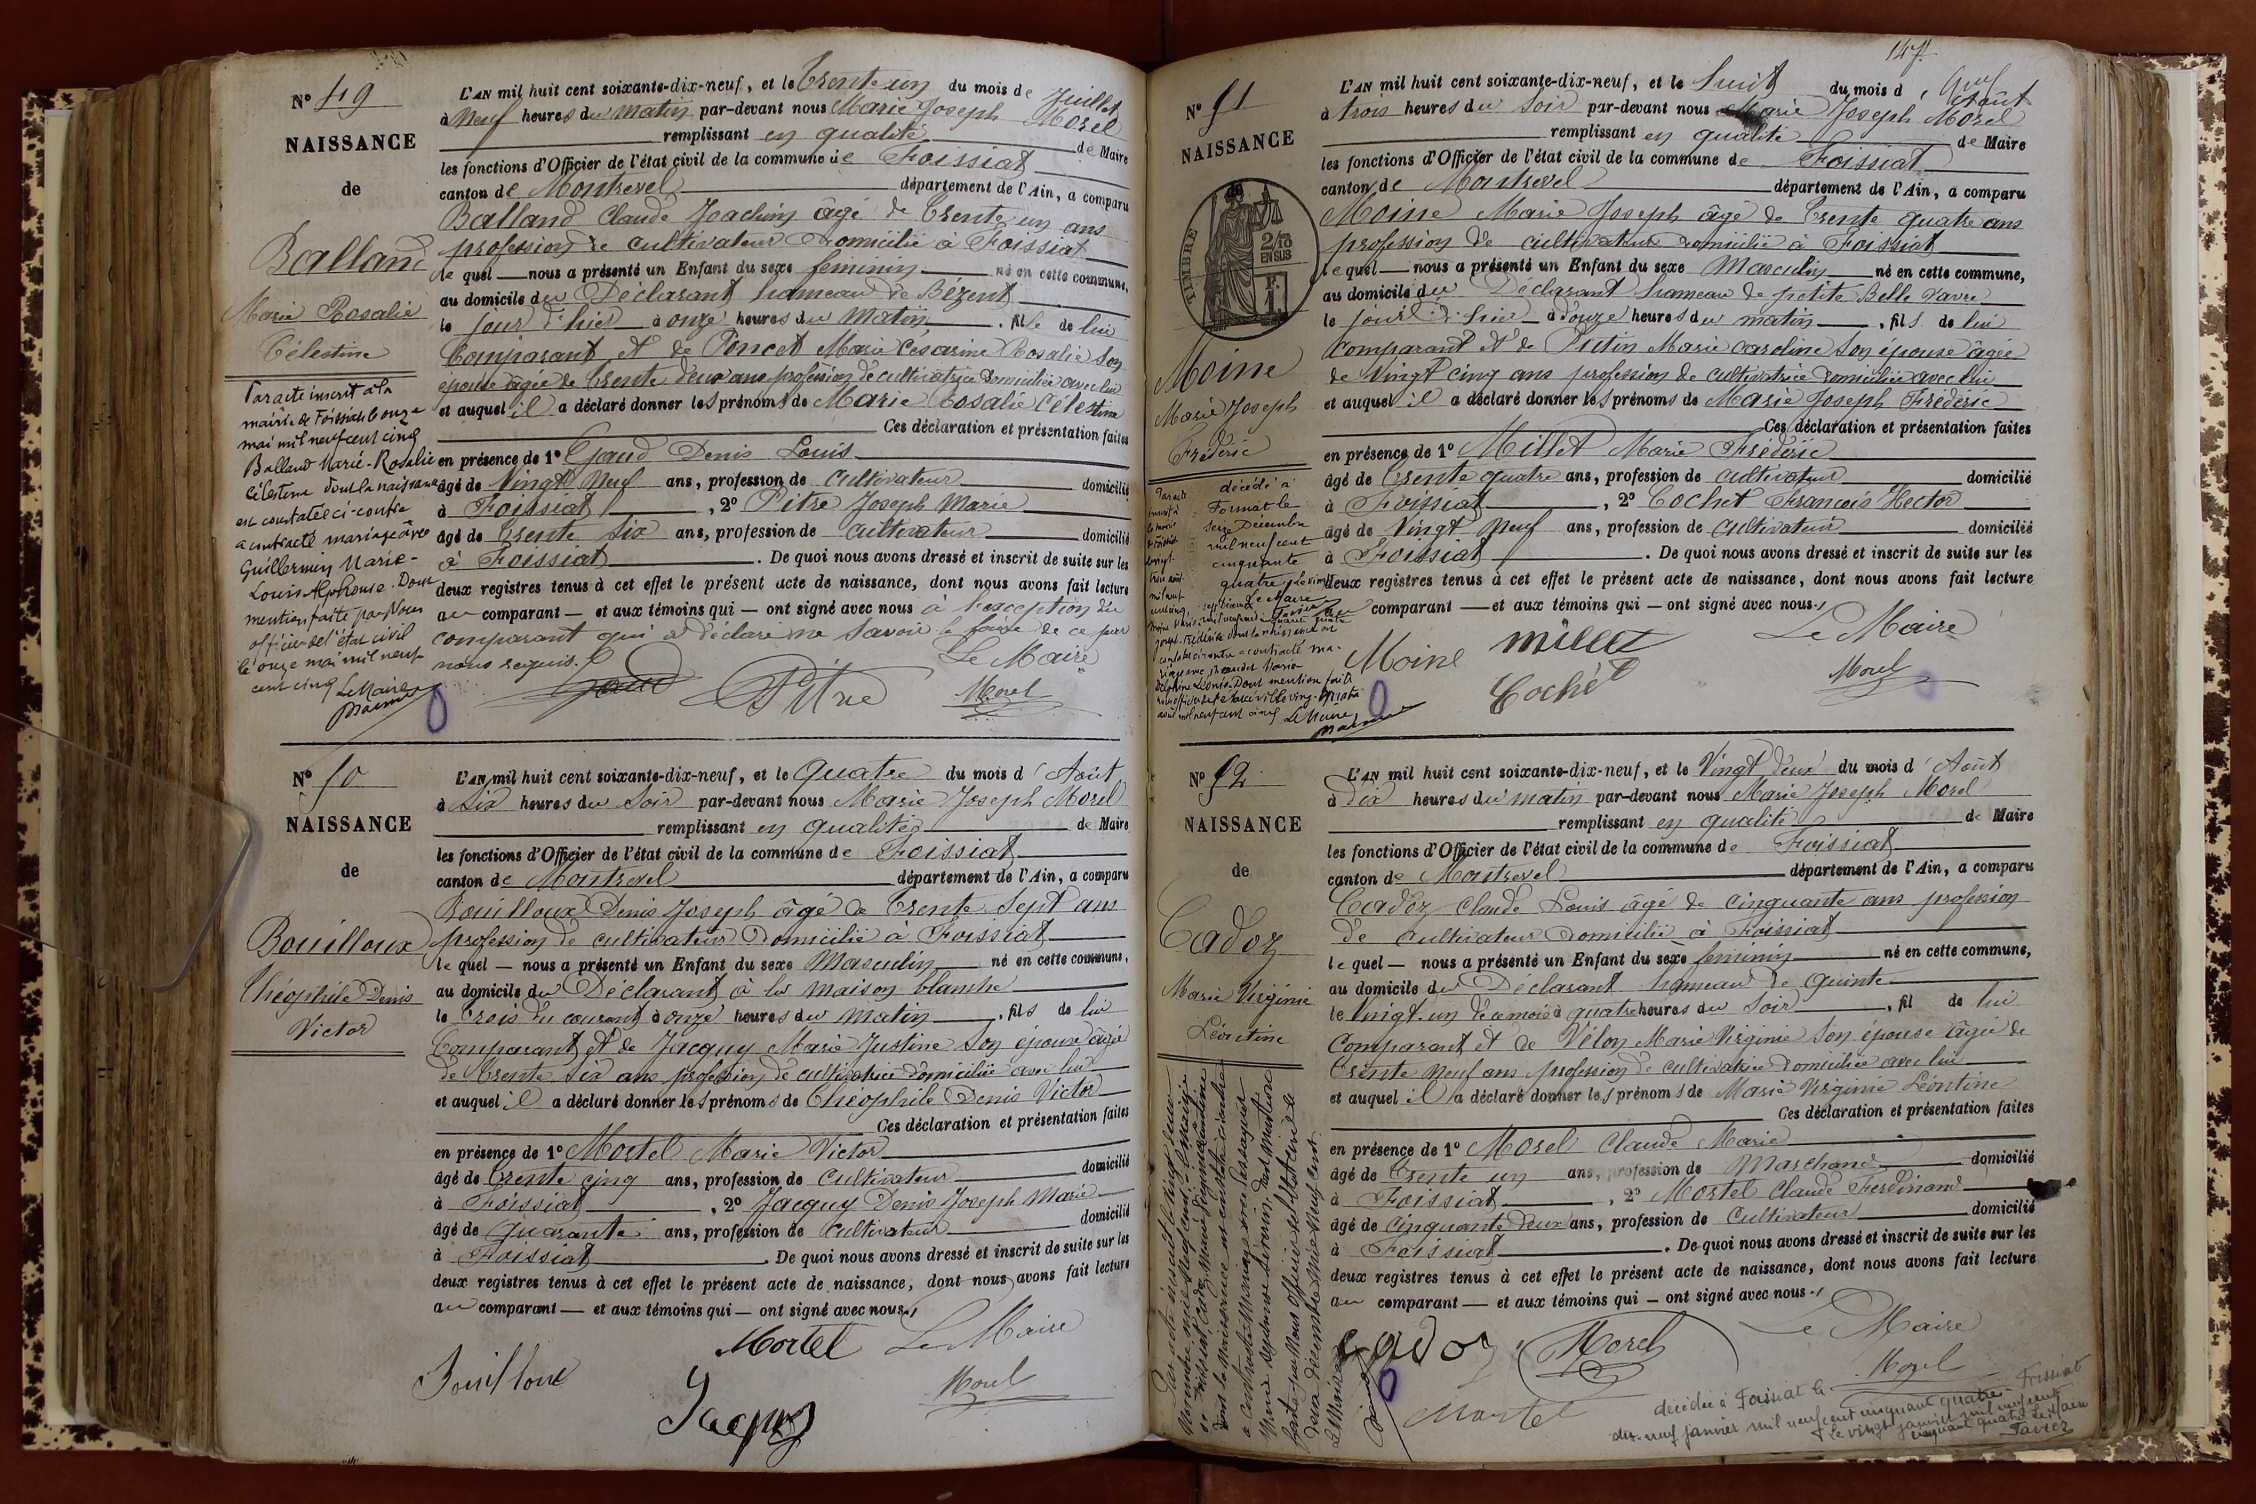 Nº 49
NAISSANCE
de
Balland
Marie Rosalie
Célestine
Par acte inscrit à la
mairie de Foissiat le onze
mai mil neuf cent cinq
Balland Marie-Rosalie
Célestine dont la naissance
est constatée ci-contre
a contracté mariage avec
Guillermin Marie-
Louis Alphonse. Dont
mention faite par Nous
officier de l'état civil
le onze mai mil neuf
cent cinq Le Maire
L'AN mil huit cent soixante-dix-neuf, et le Trente un du mois de Juillet
à Neuf heures du matin par-devant nous Marie Joseph Morel
remplissant en qualité de Maire
les fonctions d'Officier de l'état civil de la commune de Foissiat
canton de Montrevel département de l'Ain, a comparu
Balland Claude Joachim âgé de Trente un ans
profession de cultivateur domicilié à Foissiat
le quel nous a présenté un Enfant du sexe feminin né en cette commune,
au domicile du Déclarant hameau de Bézent
le jour d'hier à onze heures du matin, fille de lui
Comparant et de Poncet Marie Cesarine Rosalie son
épouse âgée de Trente deux ans profession de cultivatrice domiciliée avec lui
et auquel il a déclaré donner les prénoms de Marie Rosalie Célestine
Ces déclaration et présentation faites
en présence de 1º Gaud Denis Louis
âgé de Vingt Neuf ans, profession de cultivateur domicilié
à Foissiat, 2º Pitre Joseph Marie
âgé de Trente Six ans, profession de cultivateur domicilié
à Foissiat. De quoi nous avons dressé et inscrit de suite sur les
deux registres tenus à cet effet le présent acte de naissance, dont nous avons fait lecture
au comparant et aux témoins qui ont signé avec nous à l'exception du
comparant qui a déclaré ne savoir le faire de ce par
nous requis.
Le Maire
Gaud Pitre Morel
Nº 50
NAISSANCE
de
Bouilloux
Théophile Denis
Victor
L'AN mil huit cent soixante-dix-neuf, et le Quatre du mois d'Août
à Six heures du Soir par-devant nous Marie Joseph Morel
remplissant en qualité de Maire
les fonctions d'Officier de l'état civil de la commune de Foissiat
canton de Montrevel département de l'Ain, a comparu
Bouilloux Denis Joseph âgé de Trente Sept ans
profession de cultivateur Domicilié à Foissiat
le quel nous a présenté un Enfant du sexe Masculin né en cette commune,
au domicile du Déclarant à la maison blanche
le Trois du courant à onze heures du matin, fils de lui
Comparant et de Jacquy Marie Justine Son épouse âgée
de Trente Six ans profession de cultivatrice domiciliée avec lui
et auquel il a déclaré donner les prénoms de Théophile Denis Victor
Ces déclaration et présentation faites
en présence de 1º Mortel Marie Victor
âgé de Trente cinq ans, profession de cultivateur domicilié
à Foissiat, 2º Jacquy Denis Joseph Marie
âgé de Quarante ans, profession de cultivateur domicilié
à Foissiat. De quoi nous avons dressé et inscrit de suite sur les
deux registres tenus à cet effet le présent acte de naissance, dont nous avons fait lecture
au comparant et aux témoins qui ont signé avec nous.
Mortel Le Maire
Bouilloux Morel
Jacquy
147
Nº 51
NAISSANCE
de
TIMBRE
2/10
EN SUS
Moine
Marie Joseph
Fréderic
décédé à
Format le
seize Décembre
mil neuf cent
cinquante
quatre
L'AN mil huit cent soixante-dix-neuf, et le huit du mois d'Août
à trois heures du Soir par-devant nous Marie Joseph Morel
remplissant en qualité de Maire
les fonctions d'Officier de l'état civil de la commune de Foissiat
canton de Montrevel département de l'Ain, a comparu
Moine Marie Joseph âgé de Trente quatre ans
profession de cultivateur domicilié à Foissiat
le quel nous a présenté un Enfant du sexe Masculin né en cette commune,
au domicile du Déclarant hameau de petite Belle vavre
le jour d'hier à onze heures du matin, fils de lui
Comparant et de Putin Marie caroline Son épouse âgée
de Vingt cinq ans profession de cultivatrice domiciliée avec lui
et auquel il a déclaré donner les prénoms de Marie Joseph Fréderic
Ces déclaration et présentation faites
en présence de 1º Millet Marie Fréderic
âgé de Trente quatre ans, profession de cultivateur domicilié
à Foissiat, 2º Cochet François Hector
âgé de Vingt Neuf ans, profession de cultivateur domicilié
à Foissiat. De quoi nous avons dressé et inscrit de suite sur les
deux registres tenus à cet effet le présent acte de naissance, dont nous avons fait lecture
au comparant et aux témoins qui ont signé avec nous.
Moine Millet Le Maire
Cochet Morel
Nº 52
NAISSANCE
de
Cadoz
Marie Virginie
Léontine
L'AN mil huit cent soixante-dix-neuf, et le Vingt deux du mois d'Août
à Dix heures du matin par-devant nous Marie Joseph Morel
remplissant en qualité de Maire
les fonctions d'Officier de l'état civil de la commune de Foissiat
canton de Montrevel département de l'Ain, a comparu
Cadoz Claude Louis âgé de cinquante ans profession
de cultivateur domicilié à Foissiat
le quel nous a présenté un Enfant du sexe feminin né en cette commune,
au domicile du Déclarant hameau de Quinte
le Vingt-un de ce mois à quatre heures du Soir, fil de lui
Comparant et de Vélon Marie Virginie Son épouse âgée de
Trente Neuf ans profession de cultivatrice domiciliée avec lui
et auquel il a déclaré donner les prénoms de Marie Virginie Léontine
Ces déclaration et présentation faites
en présence de 1º Morel Claude Marie
âgé de Trente un ans, profession de Marchand domicilié
à Foissiat, 2º Mortel Claude Ferdinand
âgé de Cinquante deux ans, profession de Cultivateur domicilié
à Foissiat. De quoi nous avons dressé et inscrit de suite sur les
deux registres tenus à cet effet le présent acte de naissance, dont nous avons fait lecture
au comparant et aux témoins qui ont signé avec nous.
Cadoz Morel Le Maire
Mortel Morel
décédée à Foissiat le
dix-neuf janvier mil neuf cent cinquante quatre. Foissiat
le vingt janvier mil neuf cent
cinquante quatre Le Maire